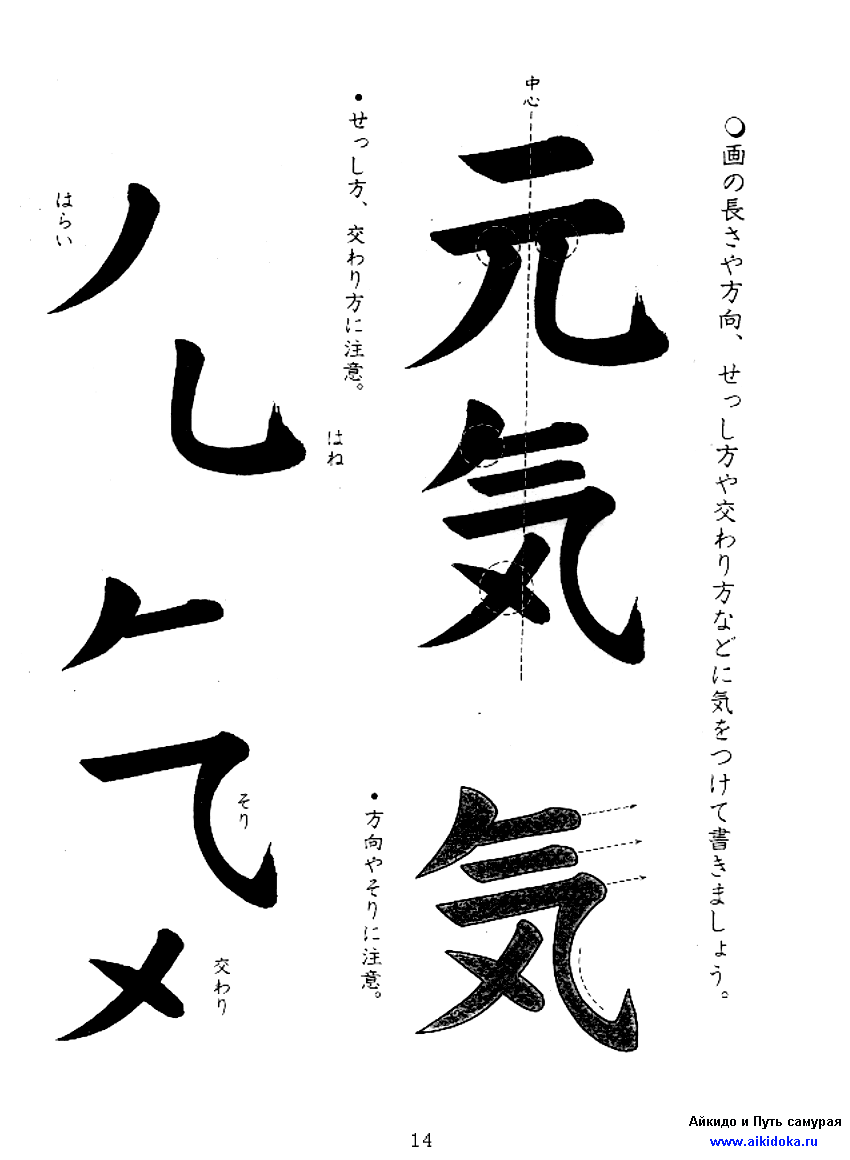 ○画の長さや方向、せっし方や交わり方などに気をつけて書きましょう。
中心
元気
•せっし方、交わり方に注意。
はらい
はね
気
•方向やそりに注意。
そり
交わり
14
Айкидо и Путь самурая
www.aikidoka.ru